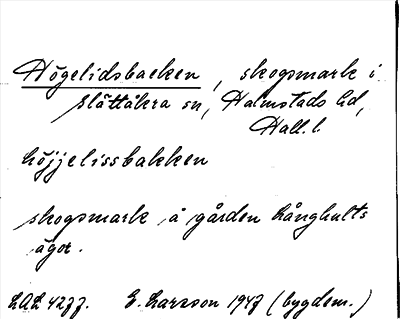 Högelidsbacken, skogsmark i
Slättåkra sn, Halmstads hd,
Hall. l.
höjjelissbakken
skogsmark å gården Långhults
ägor.
LAL 4277. E. Larsson 1947 (bygdem.)